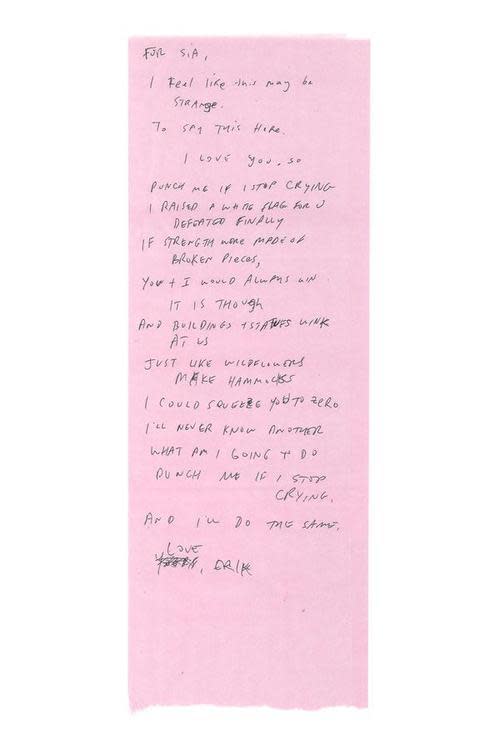 FOR SIA,
I Feel like this may be
STRANge.
To SAY THIS HeRe.
I LOVE you, so
PUNCH ME IF I STOP CRYING
I RAISED A WHITE FLAG FOR U
DEFEATED FINALLY
IF STRENGTH WERE MADE OF
BROKEN PIECES,
YOU + I WOULD ALWAYS WIN
IT IS THOUgh
AND BUILDINGS + STATUES WINK
AT US
JUST LIKE WILDFLOWERS
MAKE HAMMOCKS
I COULD SQUEEZE YOU TO ZERO
I'LL NEVER KNOW ANOTHER
WHAT AM I GOING TO DO
PUNCH ME IF I STOP
CRYING.
AND I'LL DO THE SAME.
LOVE
, ERIK